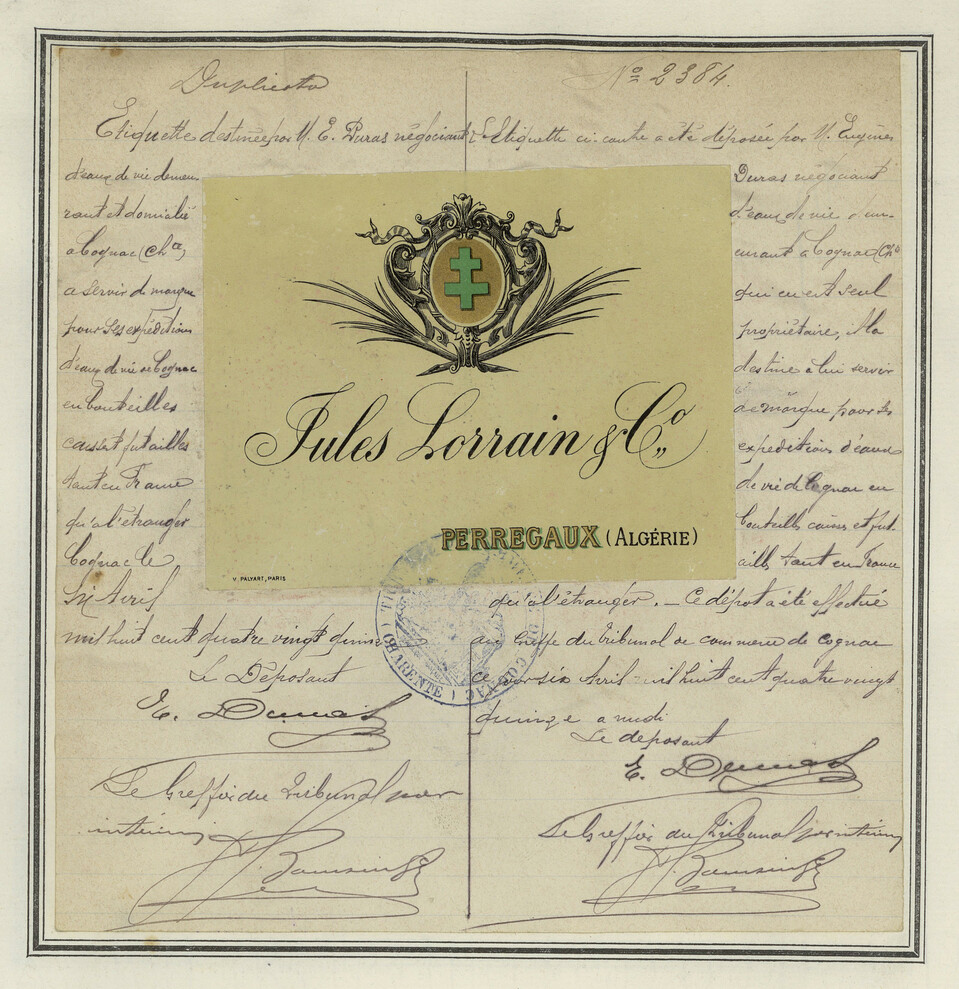 Duplicata
Etiquette destinée par M. E. Duras négociant
d'eaux de vie demeu
rant et domicilié
à Cognac (Chte)
a servir de marque
pour ses expéditions
d'eaux de vie de Cognac
en bouteilles
caisses et futailles
tant en France
qu'a l'étranger
Cognac le
Six Avril
mil huit cent quatre vingt quinze
Le Déposant
E. Duras
Le Greffier du Tribunal par
intérim
No 2384.
L'Etiquette ci-contre a été déposée par M. Eugène
Duras négociant
d'eaux de vie deme-
urant à Cognac (Chte
qui en est seul
propriétaire, Il la
destine à lui servir
de marque pour ses
expéditions d'eaux
de vie de Cognac en
bouteilles caisses et fut-
ailles tant en France
qu'a l'étranger. — Ce dépot a été effectué
au Greffe du Tribunal de commerce de Cognac
ce jour six Avril mil huit cent quatre vingt
quinze a midi
Le deposant
E. Duras
Le Greffier du Tribunal par intérim
Jules Lorrain & Co„
PERREGAUX (ALGÉRIE)
V. PALYART, PARIS
COGNAC
(CHARENTE)